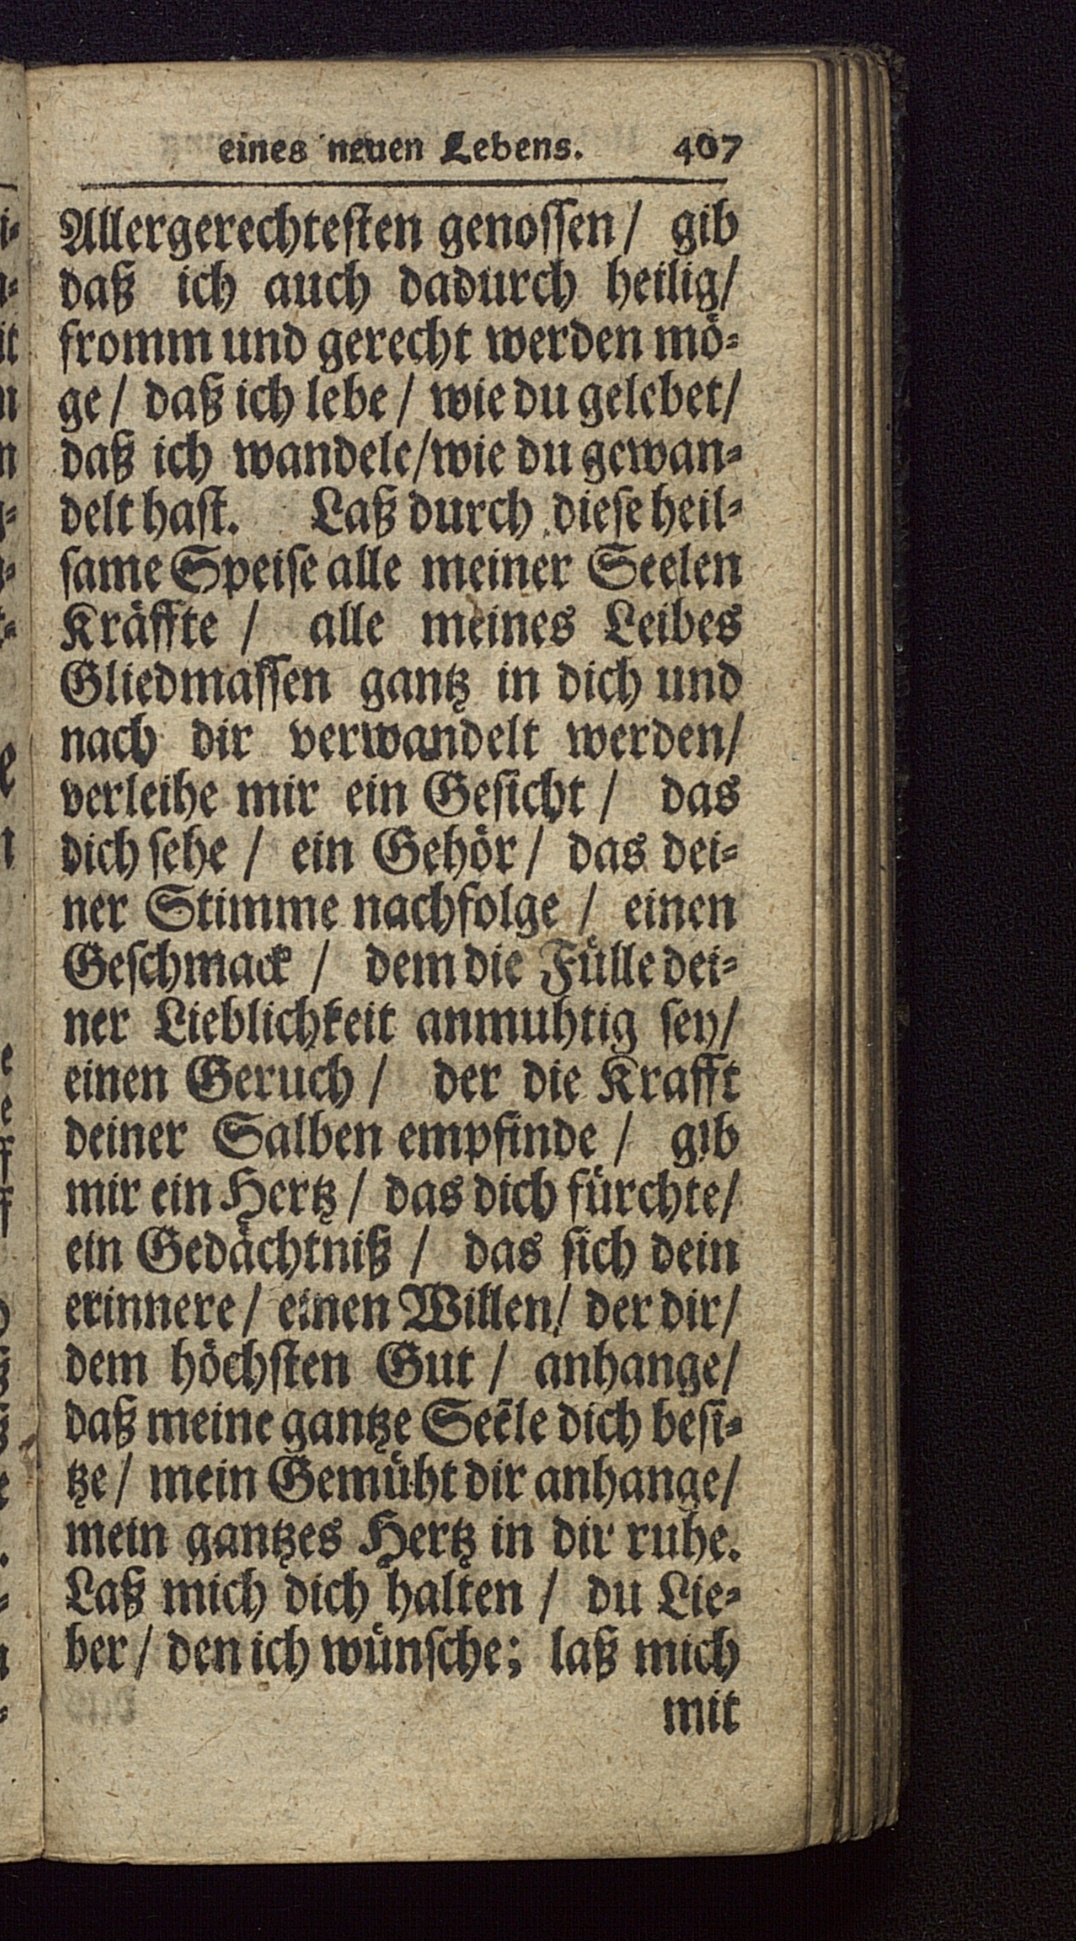 eines neuen Lebens. 407
Allergerechtesten genossen/ gib
daß ich auch dadurch heilig/
fromm und gerecht werden mö-
ge/ daß ich lebe/ wie du gelebet/
daß ich wandele/wie du gewan-
delt hast. Laß durch diese heil-
same Speise alle meiner Seelen
Kräffte/ alle meines Leibes
Gliedmassen gantz in dich und
nach dir verwandelt werden/
verleihe mir ein Gesicht/ das
dich sehe/ ein Gehör/ das dei-
ner Stimme nachfolge/ einen
Geschmack/ dem die Fülle dei-
ner Lieblichkeit anmuhtig sey/
einen Geruch/ der die Krafft
deiner Salben empfinde/ gib
mir ein Hertz/ das dich fürchte/
ein Gedächtniß/ das sich dein
erinnere/ einen Willen/ der dir/
dem höchsten Gut/ anhange/
daß meine gantze Seele dich besi-
tze/ mein Gemüht dir anhange/
mein gantzes Hertz in dir ruhe.
Laß mich dich halten/ du Lie-
ber/ den ich wünsche; laß mich
mit